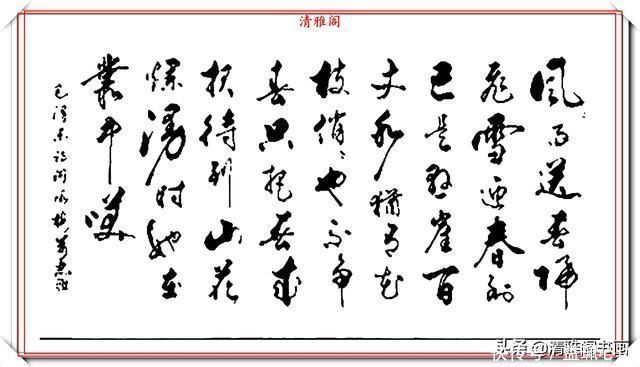 清雅阁
风雨送春归
飞雪迎春到
已是悬崖百
丈冰犹有花
枝俏俏也不争
春只把春来
报待到山花
烂漫时她在
叢中笑
毛泽东 咏梅
头条@清雅阁书画
快传号/